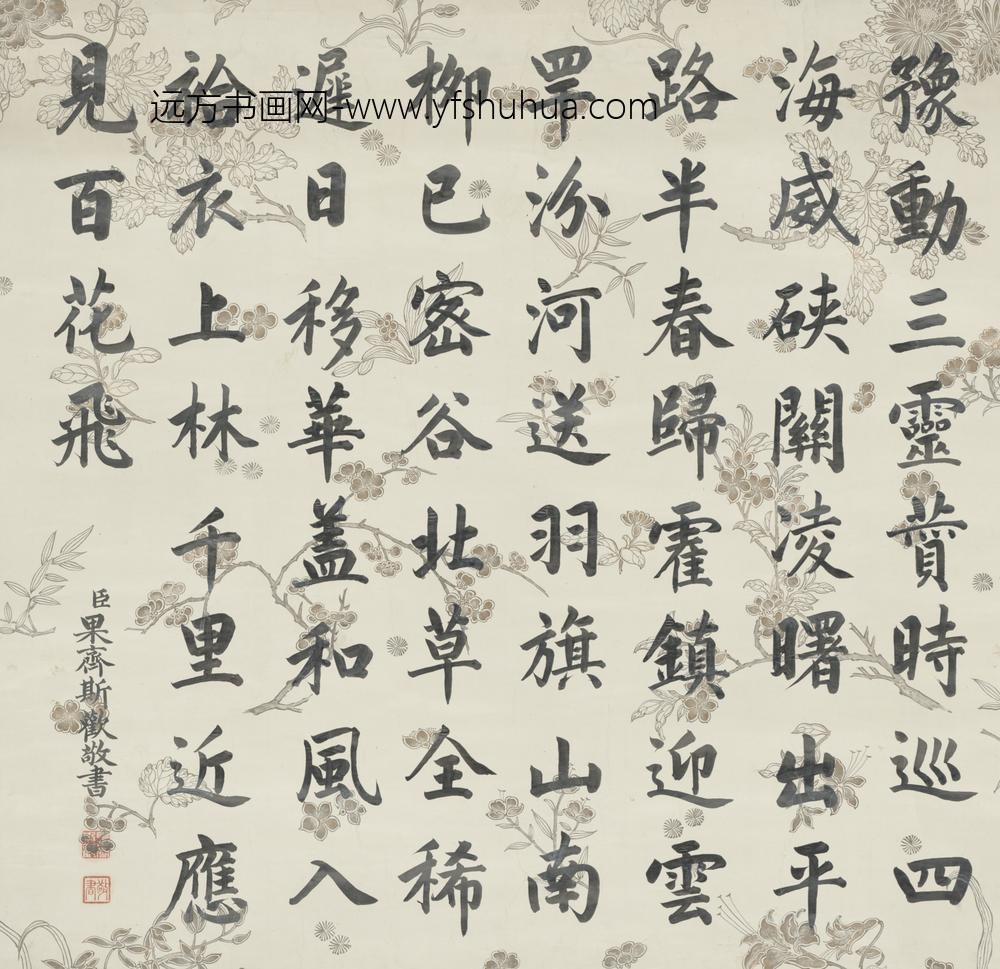 豫動三靈賛時巡四
海威硤關凌曙出平
路半春歸霍鎮迎雲
罕汾河送羽旗山南
柳已密谷北草全稀
遲日移華蓋和風入
袷衣上林千里近應
見百花飛
臣果齊斯歡敬書
敬書
远方书画网-www.yfshuhua.com